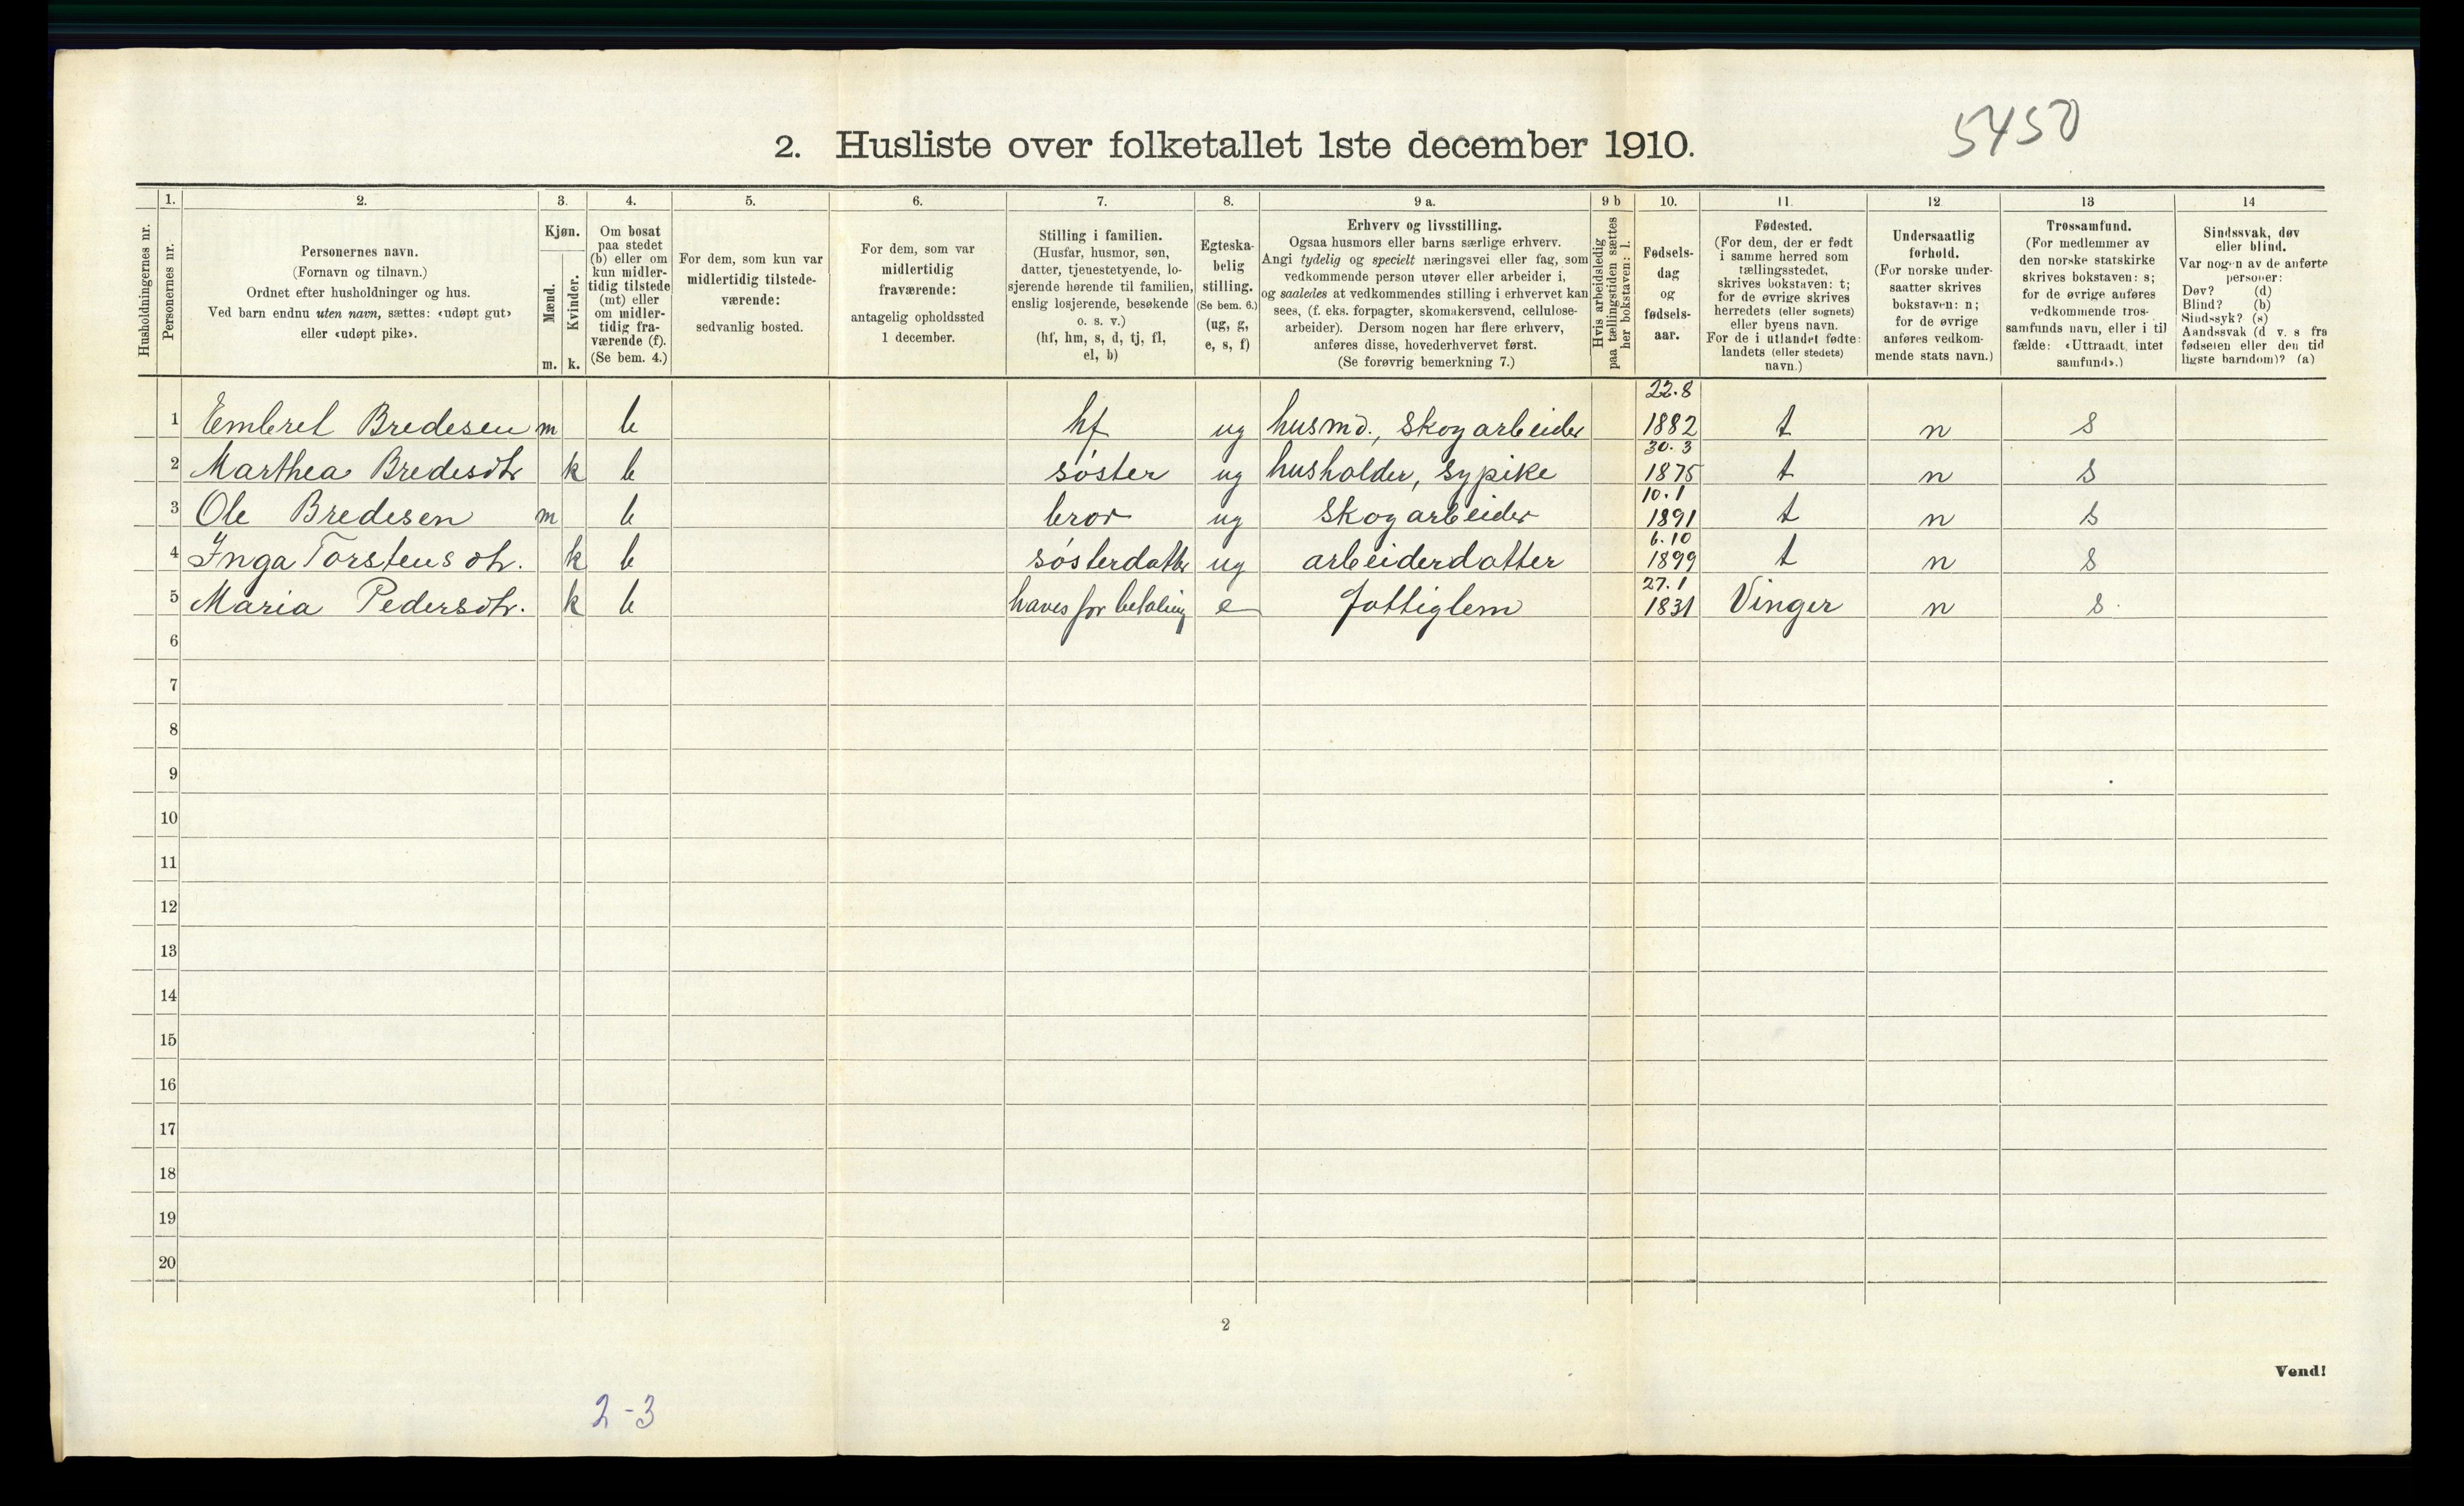 5450
2. Husliste over folketallet 1ste december 1910.
Husholdningernes nr.
1. Personernes nr.
2.
Personernes navn.
(Fornavn og tilnavn.)
Ordnet efter husholdninger og hus.
Ved barn endnu uten navn, sættes: «udøpt gut»
eller «udøpt pike».
3.
Kjøn.
Mænd. m.
Kvinder. k.
4.
Om bosat
paa stedet
(b) eller om
kun midler-
tidig tilstede
(mt) eller
om midler-
tidig fra-
værende (f).
(Se bem. 4.)
5.
For dem, som kun var
midlertidig tilstede-
værende:
sedvanlig bosted.
6.
For dem, som var
midlertidig
fraværende:
antagelig opholdssted
1 december.
7.
Stilling i familien.
(Husfar, husmor, søn,
datter, tjenestetyende, lo-
sjerende hørende til familien,
enslig losjerende, besøkende
o. s. v.)
(hf, hm, s, d, tj, fl,
el, b)
8.
Egteska-
belig
stilling.
(Se bem. 6.)
(ug, g,
e, s, f)
9 a.
Erhverv og livsstilling.
Ogsaa husmors eller barns særlige erhverv.
Angi tydelig og specielt næringsvei eller fag, som
vedkommende person utøver eller arbeider i,
og saaledes at vedkommendes stilling i erhvervet kan
sees, (f. eks. forpagter, skomakersvend, cellulose-
arbeider). Dersom nogen har flere erhverv,
anføres disse, hovederhvervet først.
(Se forøvrig bemerkning 7.)
9 b
Hvis arbeidsledig
paa tællingstiden sættes
her bokstaven: l.
10.
Fødsels-
dag
og
fødsels-
aar.
11.
Fødested.
(For dem, der er født
i samme herred som
tællingsstedet,
skrives bokstaven: t;
for de øvrige skrives
herredets (eller sognets)
eller byens navn.
For de i utlandet fødte:
landets (eller stedets)
navn.)
12
Undersaatlig
forhold.
(For norske under-
saatter skrives
bokstaven: n;
for de øvrige
anføres vedkom-
mende stats navn.)
13
Trossamfund.
(For medlemmer av
den norske statskirke
skrives bokstaven: s;
for de øvrige anføres
vedkommende tros-
samfunds navn, eller i til
fælde: «Uttraadt, intet
samfund».)
14
Sindssvak, døv
eller blind.
Var nogen av de anførte
personer:
Døv? (d)
Blind? (b)
Sindssyk? (s)
Aandssvak (d v. s fra
fødselen eller den tid
ligste barndom)? (a)
1 Embret Bredesen m b hf ug husmd., skogarbeider 22.8 1882 t n s
2 Marthea Bredesdtr k b søster ug husholder, sypike 30.3 1875 t n s
3 Ole Bredesen m b bror ug skogarbeider 10.1 1891 t n s
4 Inga Torstensdtr. k b søsterdatter ug arbeiderdatter 6.10 1899 t n s
5 Maria Pedersdtr. k b haves for betaling e fattiglem 27.1 1831 Vinger n s.
6
7
8
9
10
11
12
13
14
15
16
17
18
19
20
2
Vend!
2-3